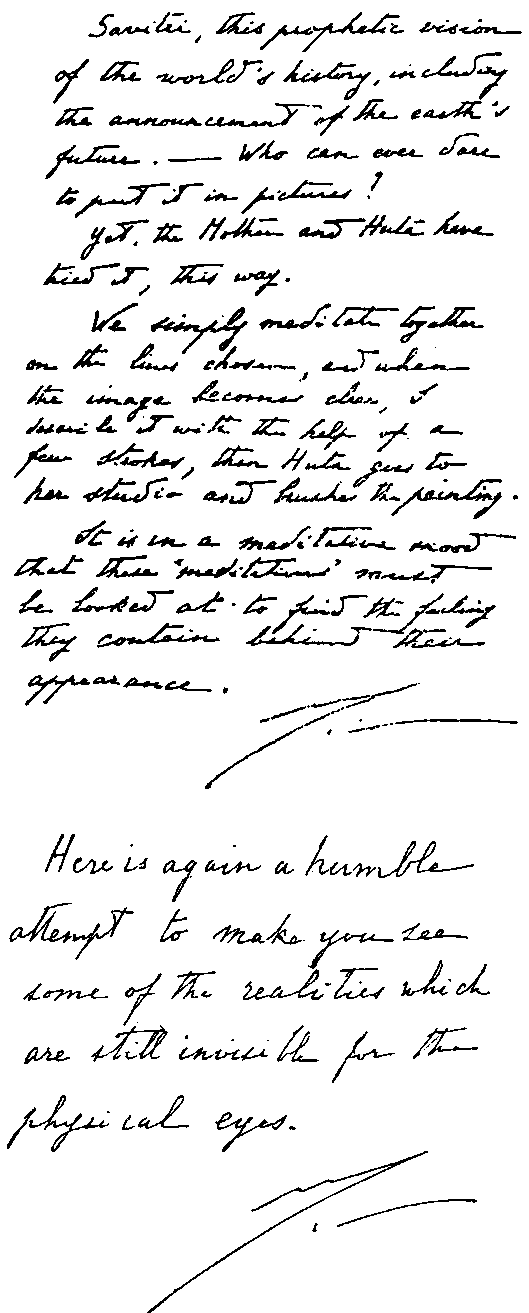 Savitri, this prophetic vision
of the world's history, including
the announcement of the earth's
future. — Who can ever dare
to put it in pictures?
Yet, the Mother and Huta have
tried it, this way.
We simply meditate together
on the lines chosen, and when
the image becomes clear, I
describe it with the help of a
few strokes, then Huta goes to
her studio and brushes the painting.
It is in a meditative mood
that these 'meditations' must
be looked at to find the feeling
they contain behind their
appearance.
Here is again a humble
attempt to make you see
some of the realities which
are still invisible for the
physical eyes.